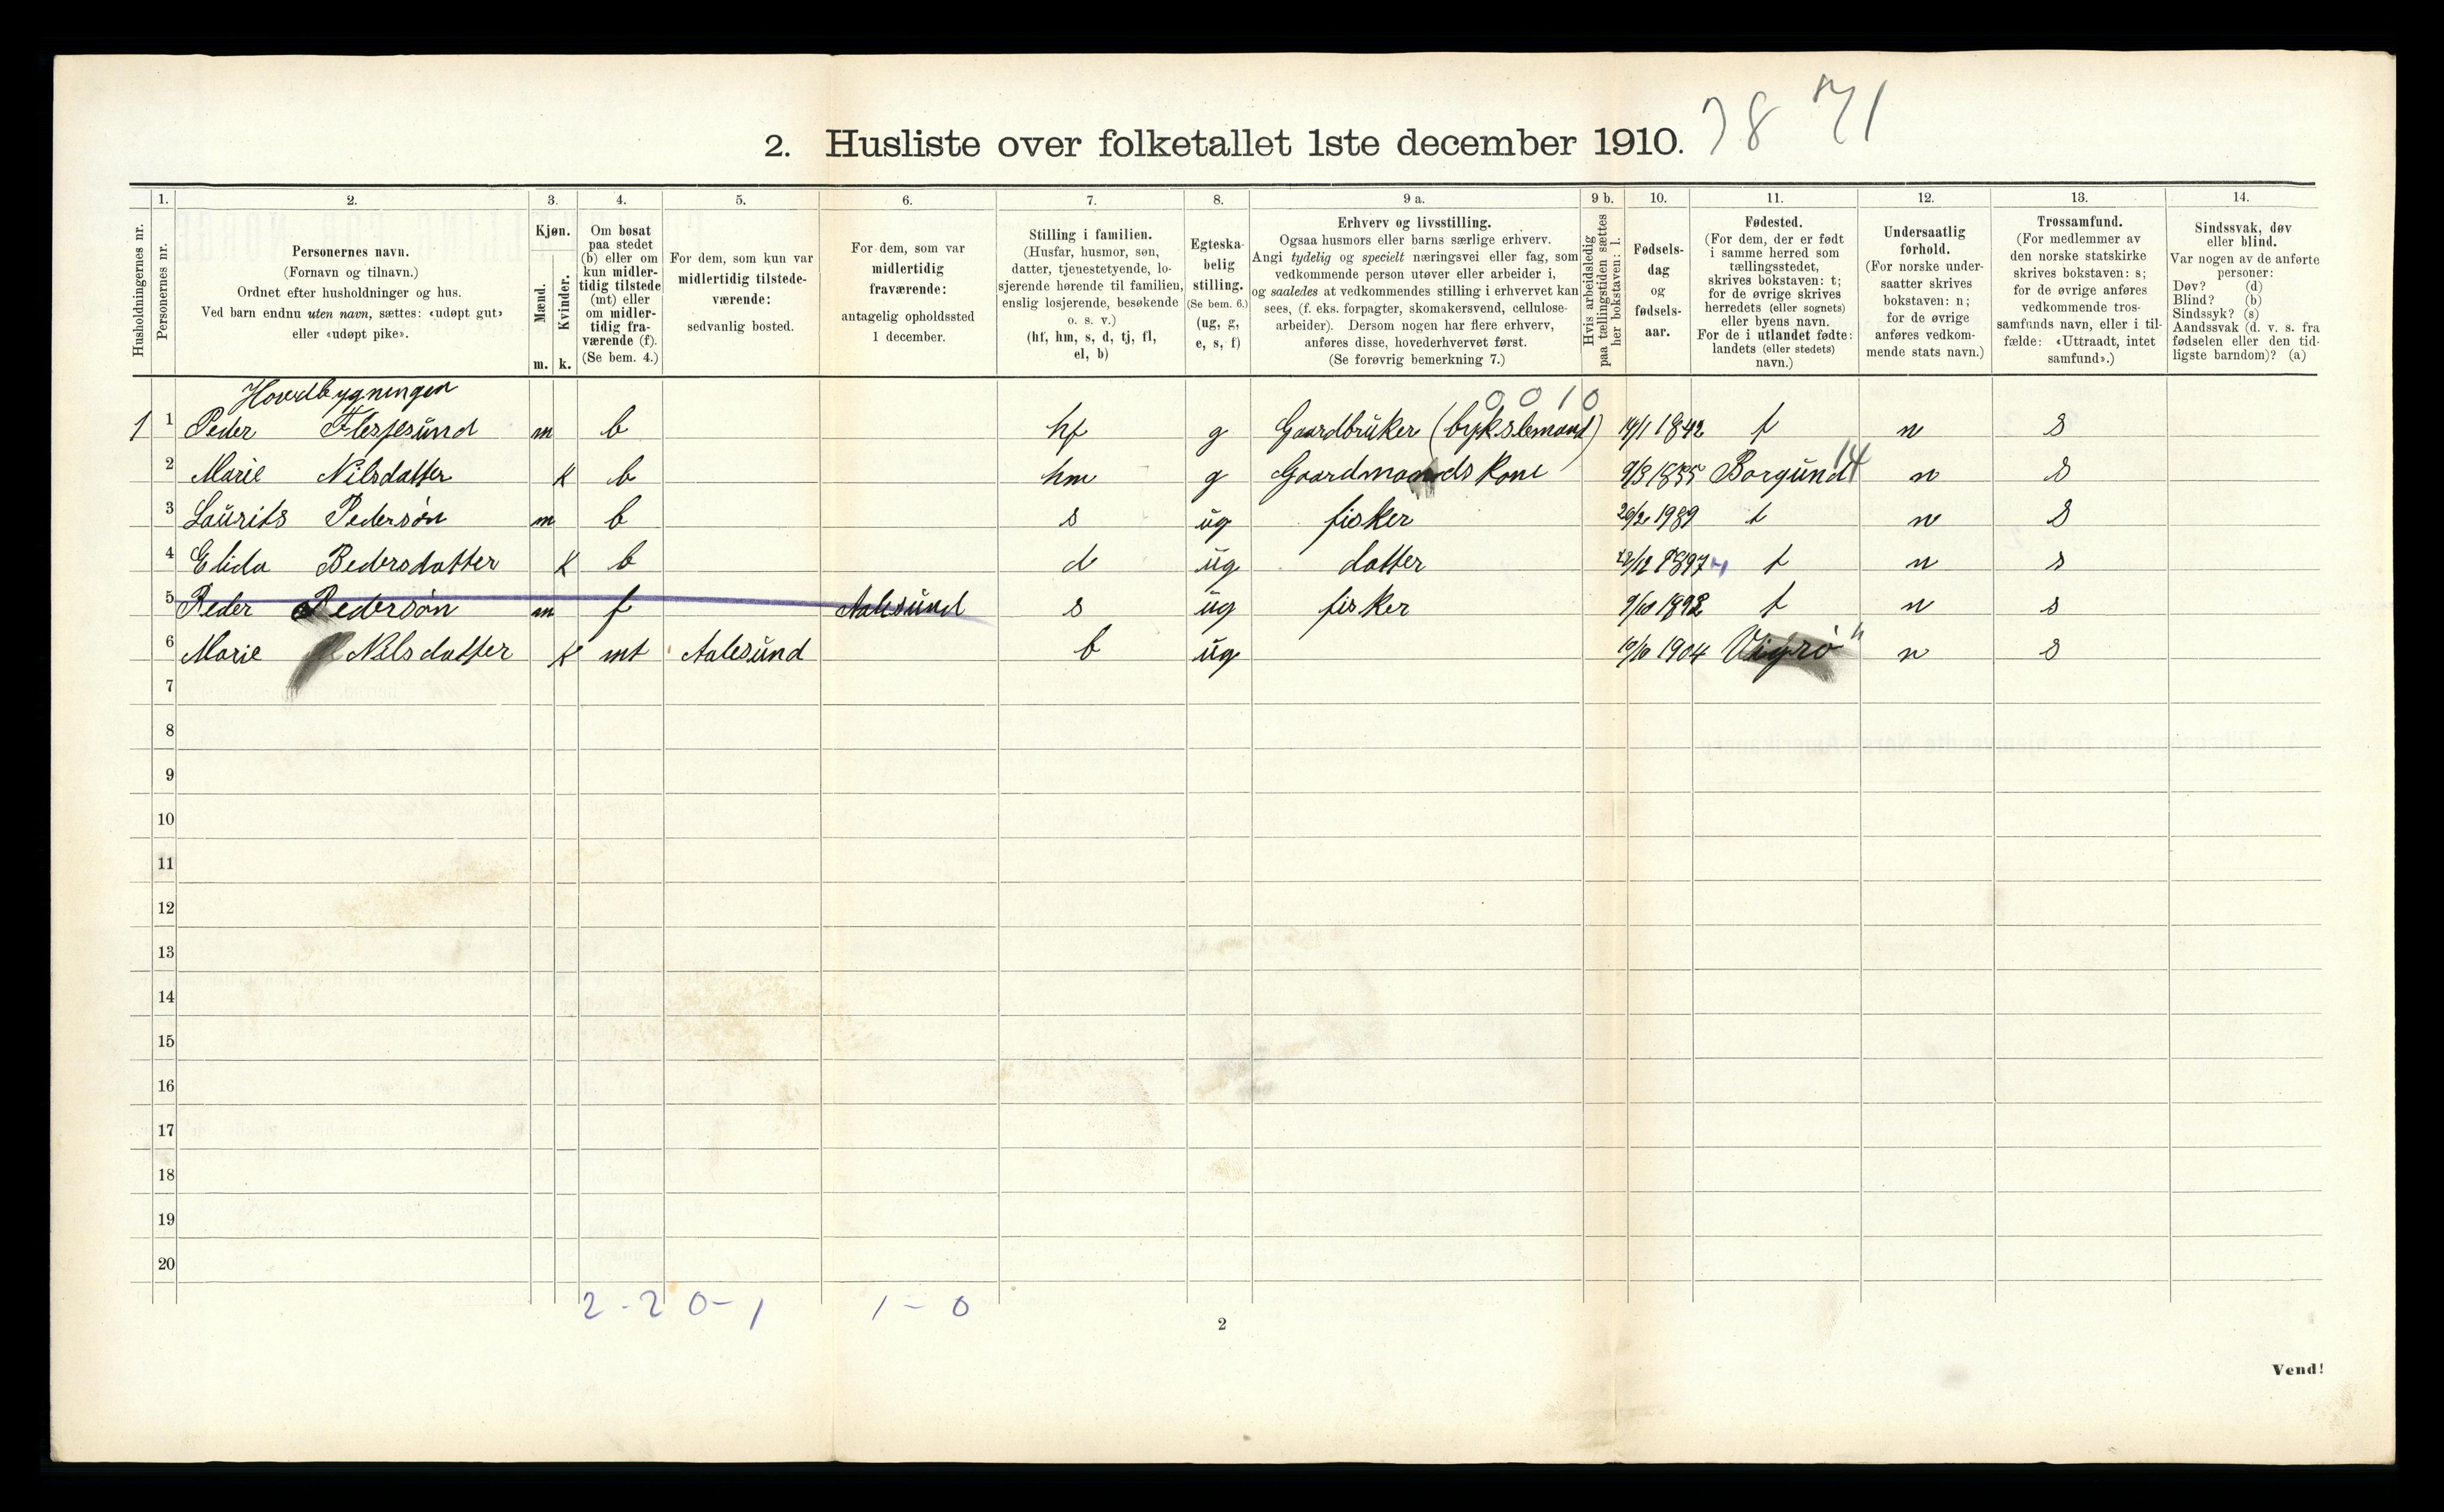 78 71
2. Husliste over folketallet 1ste december 1910.
1. 2. 3. 4. 5. 6. 7. 8. 9 a. 9 b. 10. 11. 12. 13. 14.
Husholdningernes nr.
Personernes nr.
Personernes navn.
(Fornavn og tilnavn.)
Ordnet efter husholdninger og hus.
Ved barn endnu uten navn, sættes: «udøpt gut»
eller «udøpt pike».
Kjøn.
Mænd.
Kvinder.
m. k.
Om bosat
paa stedet
(b) eller om
kun midler-
tidig tilstede
(mt) eller
om midler-
tidig fra-
værende (f).
(Se bem. 4.)
For dem, som kun var
midlertidig tilstede-
værende:
sedvanlig bosted.
For dem, som var
midlertidig
fraværende:
antagelig opholdssted
1 december.
Stilling i familien.
(Husfar, husmor, søn,
datter, tjenestetyende, lo-
sjerende hørende til familien,
enslig losjerende, besøkende
o. s. v.)
(hf, hm, s, d, tj, fl,
el, b)
Egteska-
belig
stilling.
(Se bem. 6.)
(ug, g,
e, s, f)
Erhverv og livsstilling.
Ogsaa husmors eller barns særlige erhverv.
Angi tydelig og specielt næringsvei eller fag, som
vedkommende person utøver eller arbeider i,
og saaledes at vedkommendes stilling i erhvervet kan
sees, (f. eks. forpagter, skomakersvend, cellulose-
arbeider). Dersom nogen har flere erhverv,
anføres disse, hovederhvervet først.
(Se forøvrig bemerkning 7.)
Hvis arbeidsledig
paa tællingstiden sættes
her bokstaven: l.
Fødsels-
dag
og
fødsels-
aar.
Fødested.
(For dem, der er født
i samme herred som
tællingsstedet,
skrives bokstaven: t;
for de øvrige skrives
herredets (eller sognets)
eller byens navn.
For de i utlandet fødte:
landets (eller stedets)
navn.)
Undersaatlig
forhold.
(For norske under-
saatter skrives
bokstaven: n;
for de øvrige
anføres vedkom-
mende stats navn.)
Trossamfund.
(For medlemmer av
den norske statskirke
skrives bokstaven: s;
for de øvrige anføres
vedkommende tros-
samfunds navn, eller i til-
fælde: «Uttraadt, intet
samfund».)
Sindssvak, døv
eller blind.
Var nogen av de anførte
personer:
Døv? (d)
Blind? (b)
Sindssyk? (s)
Aandssvak (d. v. s. fra
fødselen eller den tid-
ligste barndom)? (a)
Hovedbygningen
0 0 1 0
1 1 Peder Flesjesund m b hf g Gaardbruker (bykslemand) 14/1 1842 t n s
2 Marie Nilsdatter k b hm g Gaardmands kone 9/3 1855 Borgund 14 n s
3 Laurits Pedersøn m b s ug fisker 20/2 1989 t n s
4 Elida Bedersdatter k b d ug datter 12/12 1897 t n s
5 Peder Pedersøn m f Aalesund s ug fisker 9/10 1892 t n s
6 Marie Nilsdatter k mt Aalesund b ug 10/10 1904 Vigrø n s
7
8
9
10
11
12
13
14
15
16
17
18
19
20
2-2 0-1 1-0
2
Vend!